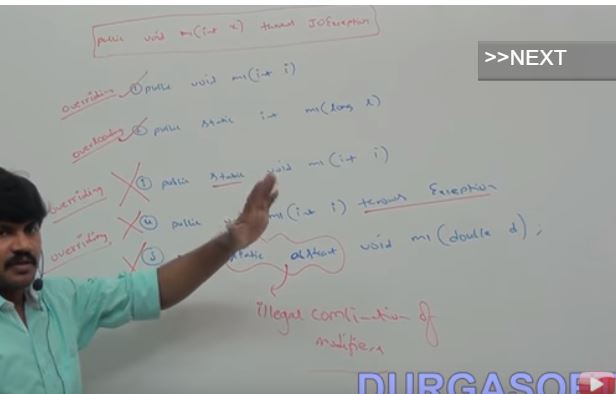 public void m1(int x) throws IOException
>>NEXT
overriding ① public void m1(int i)
overloading ② public static int m1(long l)
overriding ③ public static void m1(int i)
overriding ④ public m1(int i) throws Exception
⑤ static abstract void m1(double d);
illegal combination of
modifiers
DURGASOFT